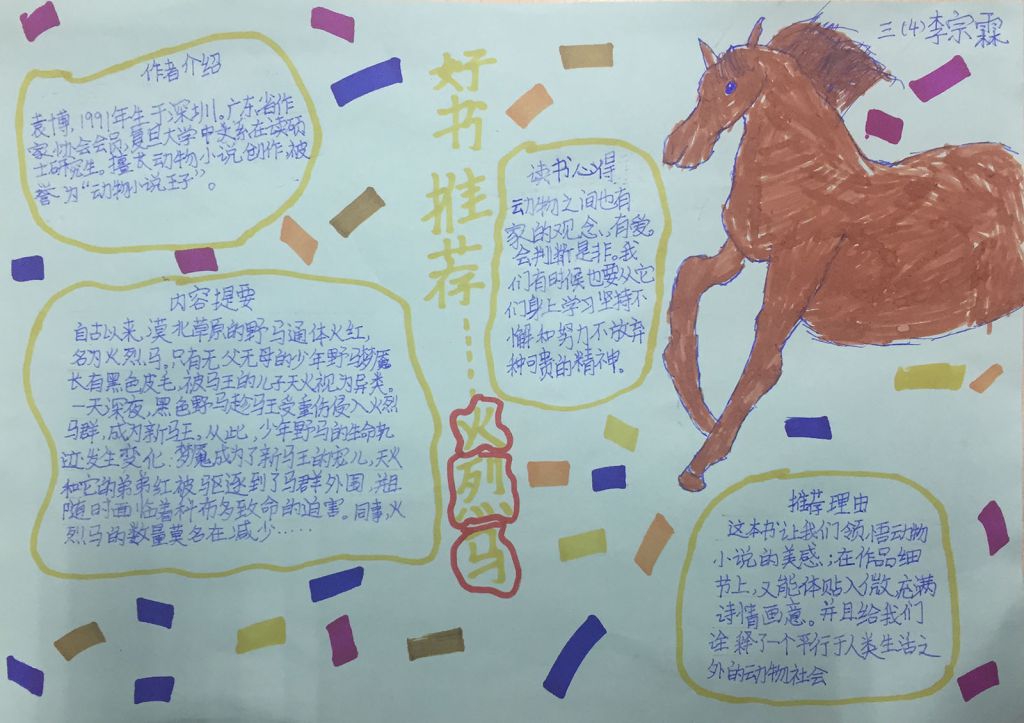 三(4)李宗霖
好书推荐……火烈马
作者介绍
袁博,1991年生于深圳。广东省作
家协会会员,复旦大学中文系在读硕
士研究生。擅长动物小说创作,被
誉为“动物小说王子”。
内容提要
自古以来,漠北草原的野马通体火红,
名为火烈马。只有无父无母的少年野马梦魇
长有黑色皮毛,被马王的儿子天火视为异类。
一天深夜,黑色野马趁马王受重伤侵入火烈
马群,成为新马王。从此,少年野马的生命轨
迹发生变化.梦魇成为了新马王的宠儿,天火
和它的弟弟红被驱逐到了马群外围,并且
随时面临着种布多致命的迫害。同事,火
烈马的数量莫名在减少……
读书心得
动物之间也有
家的观念、有爱。
会判断是非。我
们有时候也要从它
们身上学习坚持不
懈和努力不放弃
种可贵的精神。
推荐理由
这本书让我们领悟动物
小说的美感;在作品细
书上,又能体贴入微,充满
诗情画意。并且给我们
诠释了一个平行于人类生活之
外的动物社会